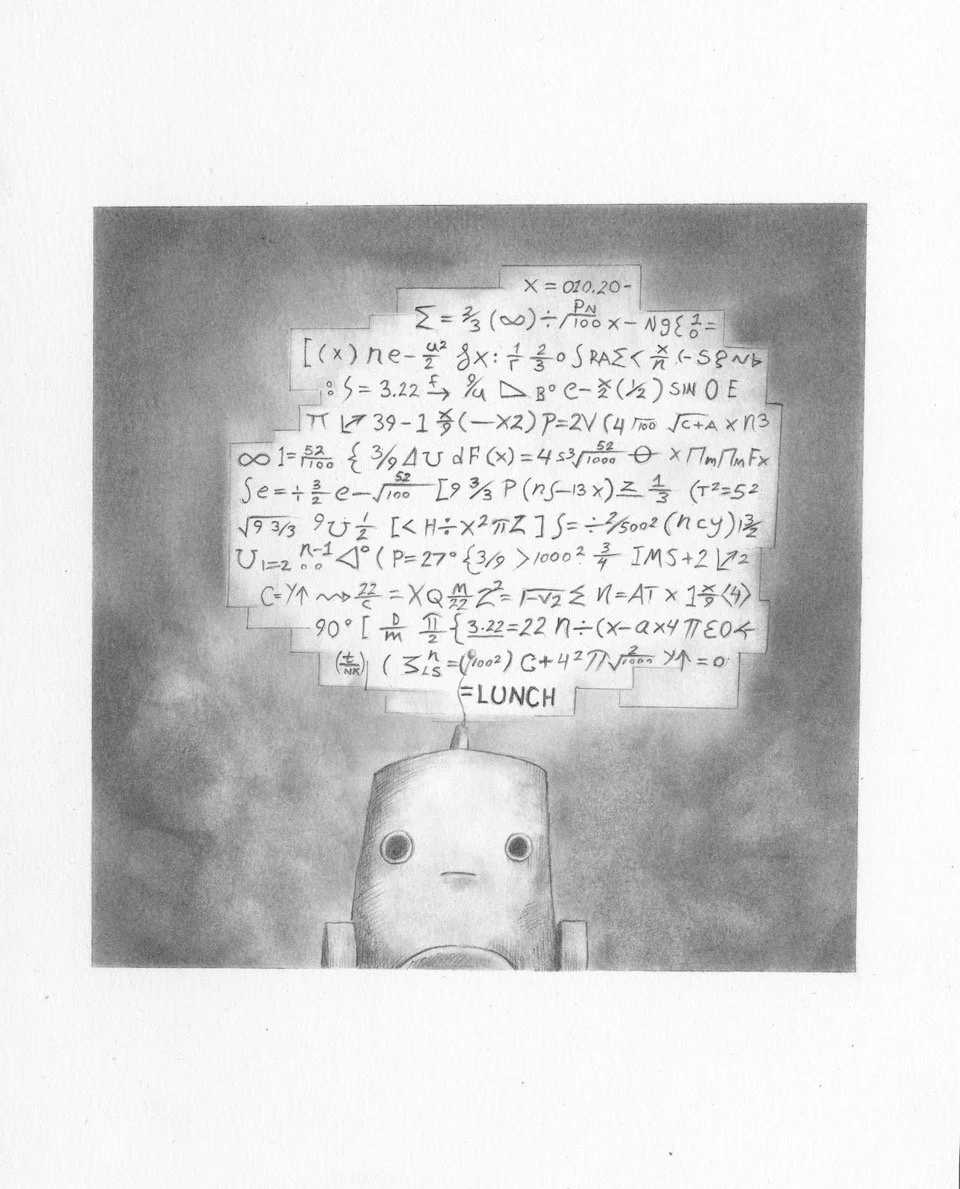 X = 010.20-
Σ = 2/3 (∞) ÷ √PN/100 x - Ng{ 1/0 =
[(x) ne - u²/2 ∮x: 1/r 2/3 o ∫ RAΣ < x/n (- S
: S = 3.22 f→ 9/u ◺ B° e - x/2 (1/2) SIN O E
π 39 - 1 x/9 (-X2) P=2V (4 √100 √C+A x n3
∞ 1 = 52/√100 { 3/9 Δ U dF(x) = 4 S³√52/1000 Θ x ΠmΠmFx
∫e = ÷ 3/2 e - √52/100 [9 3/3 P (n∫-13x) Z 1/3 (T²=52
√9 3/3 9U 1/2 [< H÷X²πZ ] ∫ = ÷2/500² (ncy) 1 3/2
U1=2 n-1 ◁° (P=27° {3/9 >1000² 3/4 IMS+2 2
C=Y↑ ⇝ 22/C = XQ M/22 Z² = √2 Σ n=AT x 1 x/9 <4)
90° [ D/m π/2 {3.22=22 n÷(x-ax4 πεO
(t/NX) ( ΣLS n = (100²) C+4²π√2/1000 Y↑ = 0
=LUNCH